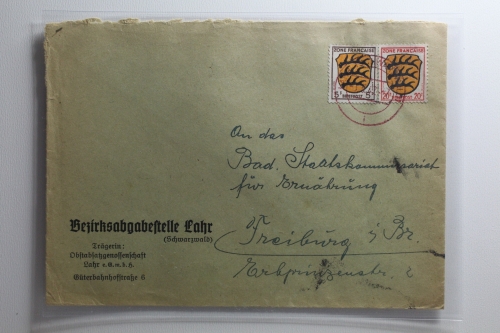 ZONE FRANÇAISE
5 Pf BRIEFPOST 5 Pf
ZONE FRANÇAISE
20 Pf 20 Pf
An das
Bad. Staatskommissariat
für Ernährung
Freiburg i/Br.
Erbprinzenstr. 2
Bezirksabgabestelle Lahr
(Schwarzwald)
Trägerin:
Obstabsatzgenossenschaft
Lahr e.G.m.b.H.
Güterbahnhofstraße 6